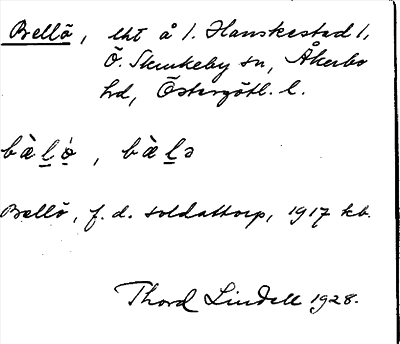 Bellö, lht å 1. Hanskestad 1,
Ö. Skrukeby sn, Åkerbo
hd, Östergötl. l.
bàl̲ò̲, bàl̲ə
Bellö, f. d. soldattorp, 1917 kb.
Thord Lindell 1928.